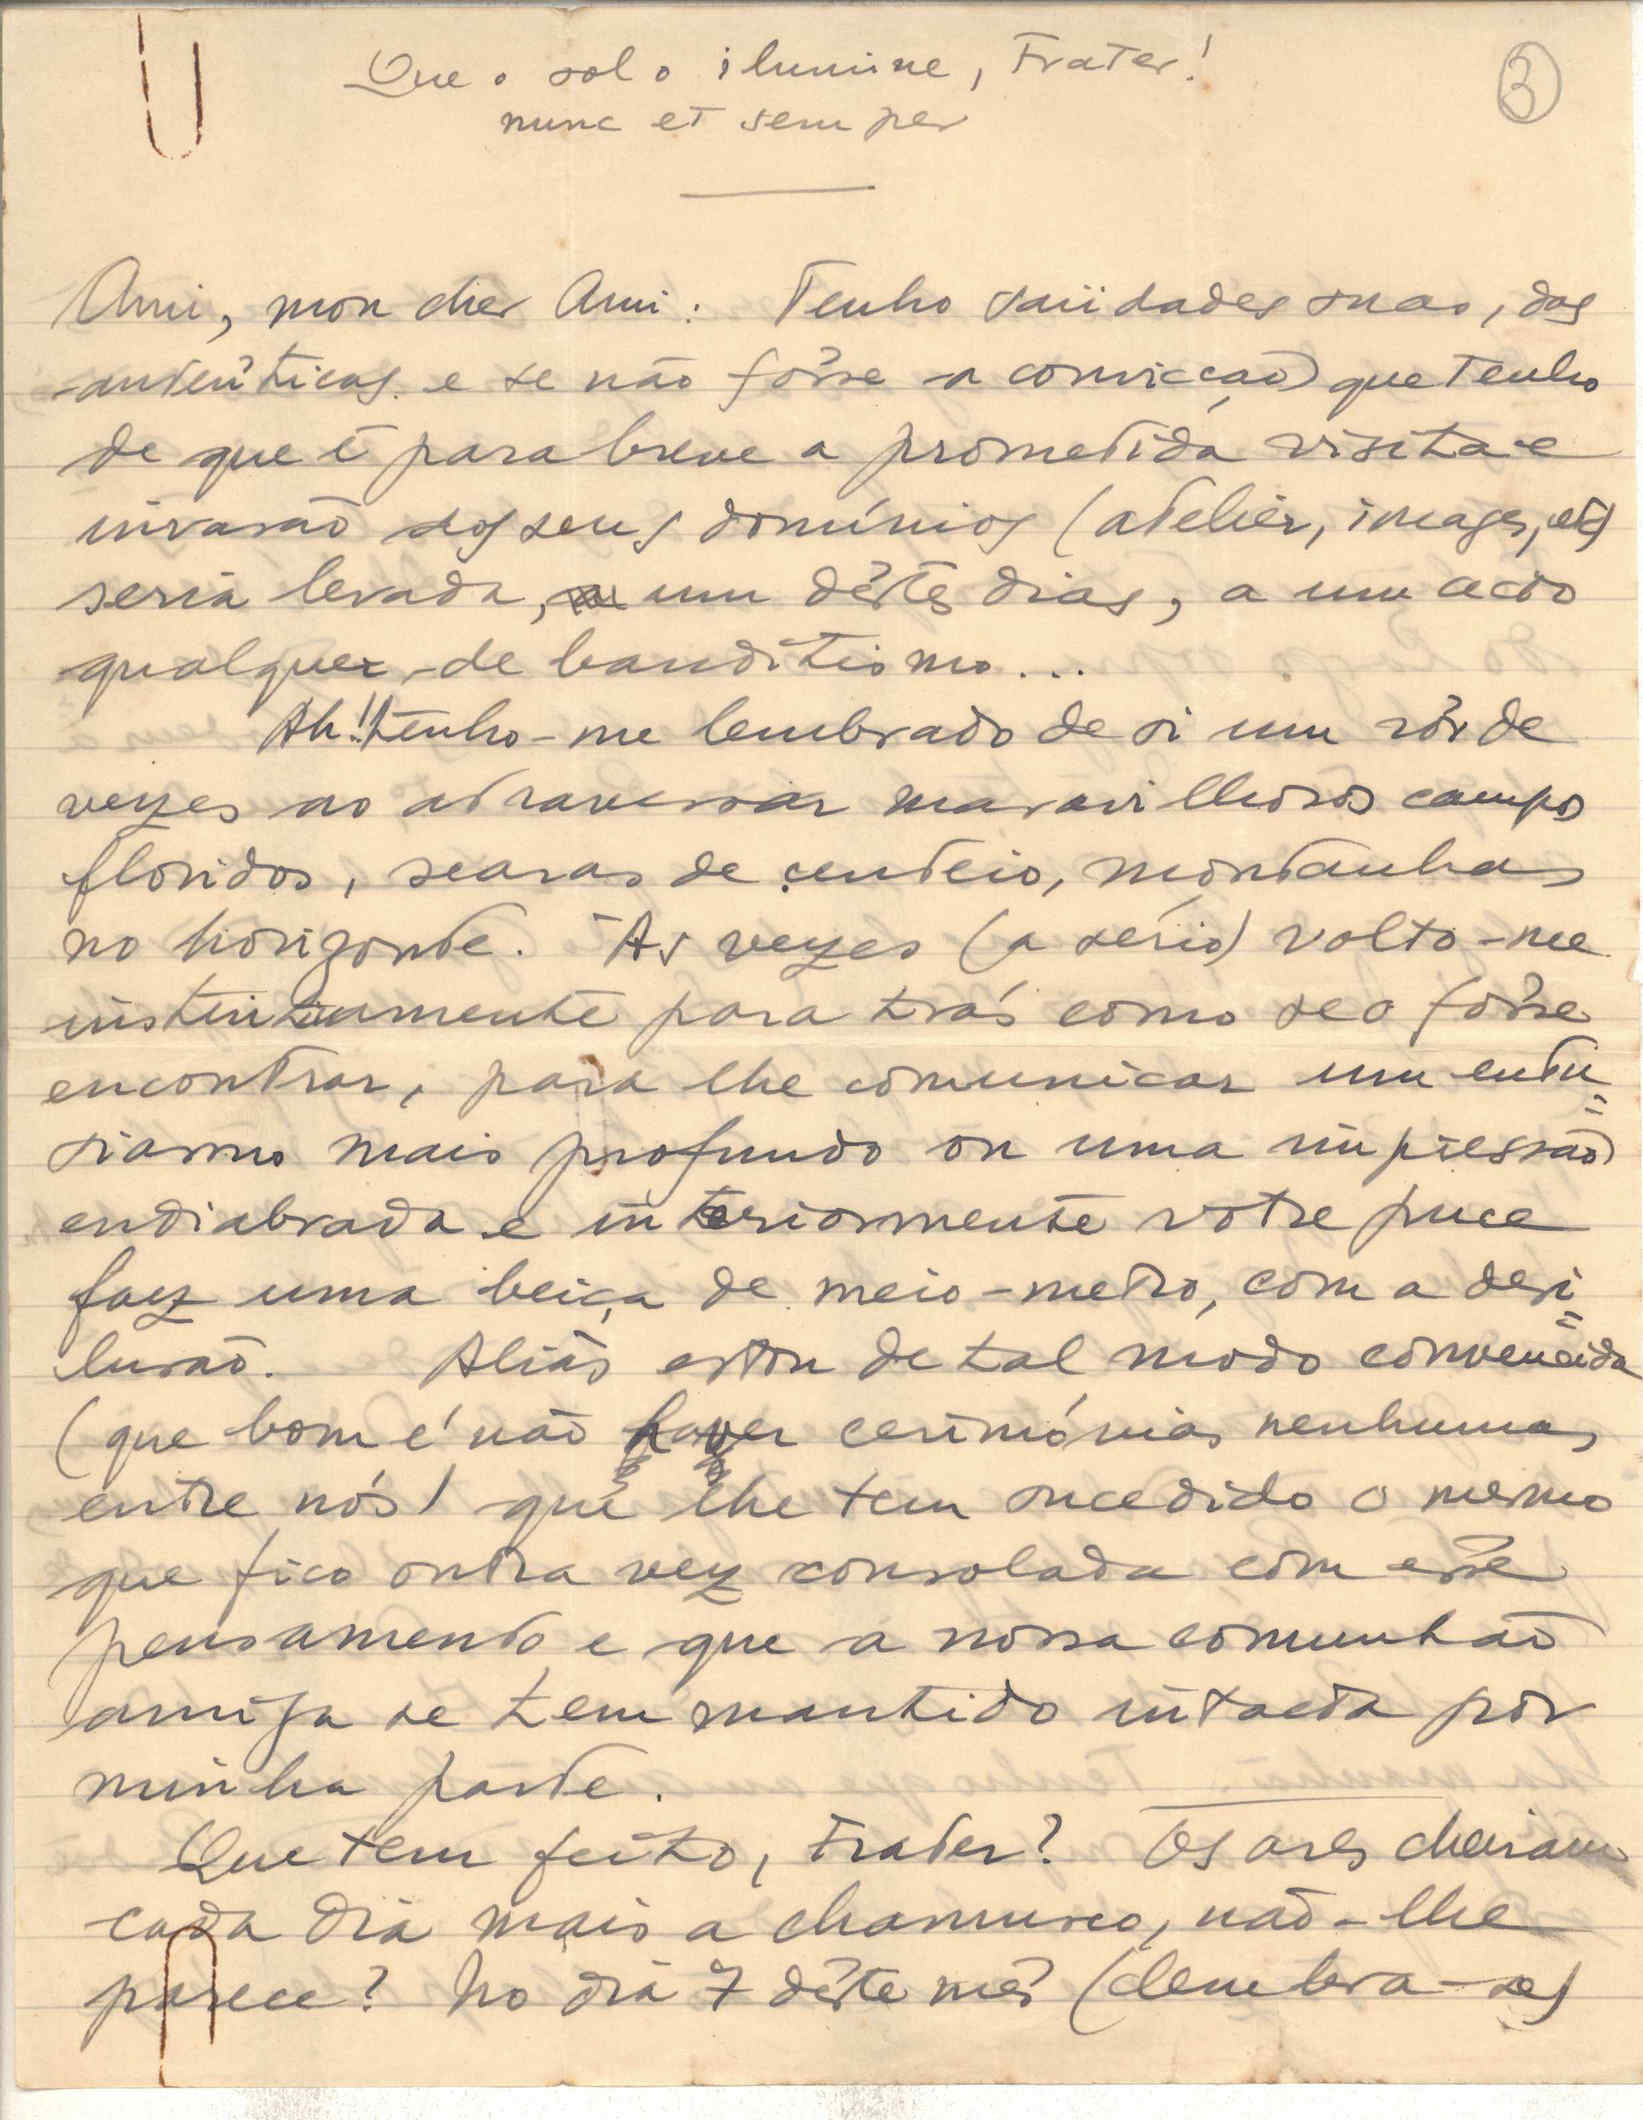 Que o sol o ilumine, Frater!
3
nunc et semper
Ami, mon cher Ami: Tenho saüdades suas, das
autênticas e se não fôsse a convicção que tenho
de que é para breve a prometida visita e
invasão dos seus domínios (atelier, images, etc)
seria levada, um dêstes dias, a um acto
qualquer de banditismo...
Ah!! tenho-me lembrado de si um rôr de
vezes ao atravessar maravilhosos campos
floridos, searas de centeio, montanhas
no horizonte. Às vezes (a sério) volto-me
instintivamente para trás como se o fôsse
encontrar, para lhe comunicar um entu=
siasmo mais profundo ou uma impressão
endiabrada e interiormente votre puce
faz uma beiça de meio-metro, com a desi=
lusão. Aliás estou de tal modo convencida
(que bom é não haver cerimónias nenhumas
entre nós) que lhe tem sucedido o mesmo
que fico outra vez consolada com êsse
pensamento e que a nossa comunhão
amiga se tem mantido intacta por
minha parte.
Que tem feito, Frater? Os ares cheiram
cada dia mais a chamusco, não-lhe
parece? No dia 7 dêste mês (lembra-se)